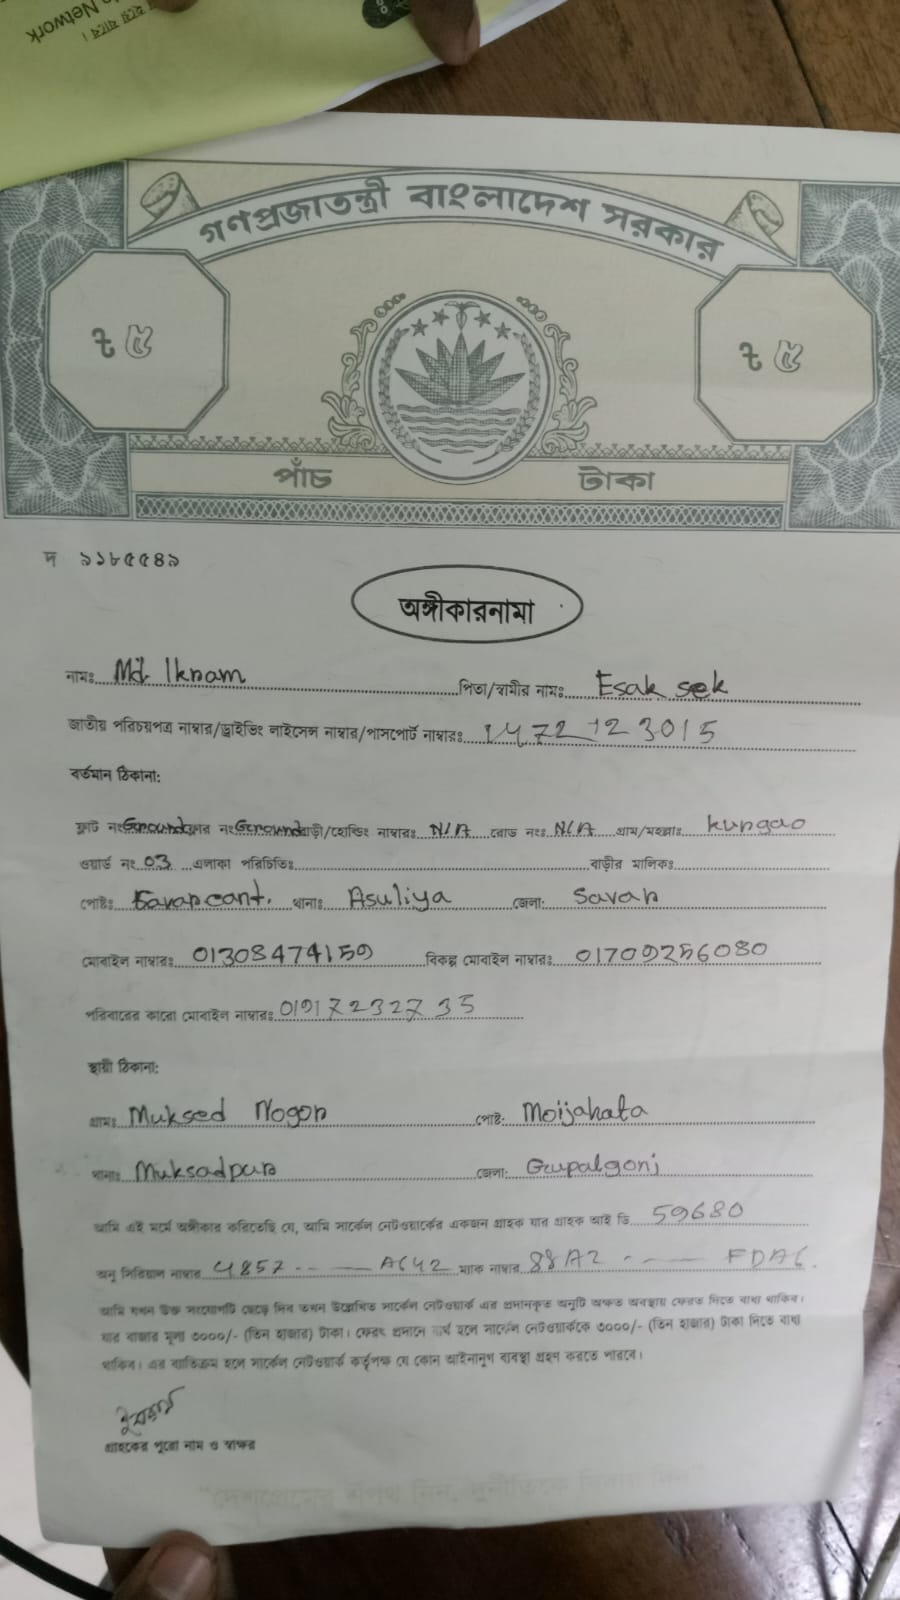 Network
হয়ে যাবে।
গণপ্রজাতন্ত্রী বাংলাদেশ সরকার
৳ ৫ ৳ ৫
পাঁচ টাকা
দ ৯১৮৫৫৪৯
অঙ্গীকারনামা
নামঃ Md. Ikram পিতা/স্বামীর নামঃ Esak sek
জাতীয় পরিচয়পত্র নাম্বার/ড্রাইভিং লাইসেন্স নাম্বার/পাসপোর্ট নাম্বারঃ 1472123015
বর্তমান ঠিকানা:
ফ্ল্যাট নংঃ Ground ফ্লোর নংঃ Ground বাড়ী/হোল্ডিং নাম্বারঃ N/A রোড নংঃ N/A গ্রাম/মহল্লাঃ kungao
ওয়ার্ড নং 03 এলাকা পরিচিতিঃ বাড়ীর মালিকঃ
পোষ্টঃ Savar cant. থানাঃ Asuliya জেলা: Savar
মোবাইল নাম্বারঃ 01308474159 বিকল্প মোবাইল নাম্বারঃ 01709256080
পরিবারের কারো মোবাইল নাম্বারঃ 01917232735
স্থায়ী ঠিকানা:
গ্রামঃ Muksed Nogor পোষ্ট: Moijahata
থানাঃ Muksadpur জেলা: Gupalgonj
আমি এই মর্মে অঙ্গীকার করিতেছি যে, আমি সার্কেল নেটওয়ার্কের একজন গ্রাহক যার গ্রাহক আই ডি 59680
অনু সিরিয়াল নাম্বার 4857 -- — A642 ম্যাক নাম্বার 88A2 - — FDA6.
আমি যখন উক্ত সংযোগটি ছেড়ে দিব তখন উল্লেখিত সার্কেল নেটওয়ার্ক এর প্রদানকৃত অনুটি অক্ষত অবস্থায় ফেরত দিতে বাধ্য থাকিব।
যার বাজার মূল্য ৩০০০/- (তিন হাজার) টাকা। ফেরৎ প্রদানে ব্যর্থ হলে সার্কেল নেটওয়ার্ককে ৩০০০/- (তিন হাজার) টাকা দিতে বাধ্য
থাকিব। এর ব্যতিক্রম হলে সার্কেল নেটওয়ার্ক কর্তৃপক্ষ যে কোন আইনানুগ ব্যবস্থা গ্রহণ করতে পারবে।
গ্রাহকের পুরো নাম ও স্বাক্ষর
"দেশপ্রেমের শপথ নিন, দুর্নীতিকে বিদায় দিন"